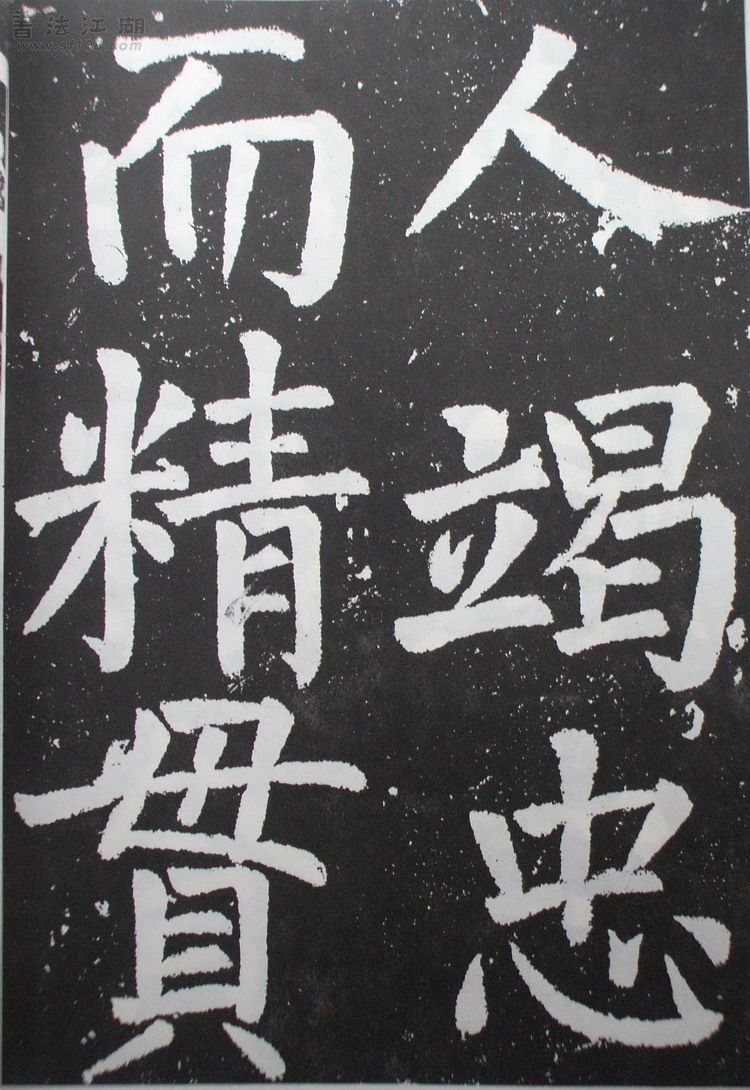 人竭忠
而精貫
書法江湖
www.sf108.com